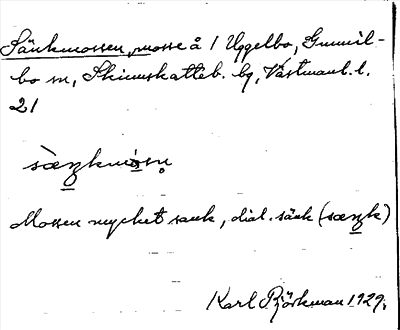 Sänkmossen, mosse å 1 Uggelbo, Gunnil-
bo sn, Skinnskatteb. bg, Västmanl. l.
21
sæŋkmòsn̥
Mossen mycket sank, dial. sänk (sæŋk)
Karl Björkman 1929.